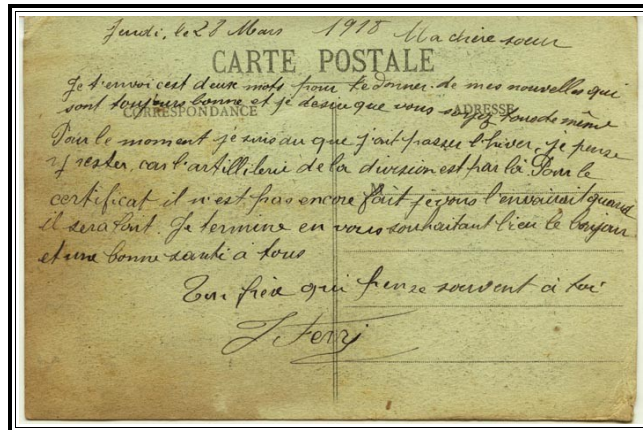 Jeudi, le 28 Mars 1918 Ma chère soeur
CARTE POSTALE
Je t'envoi cest deux mots pour te donner de mes nouvelles qui
sont toujours bonne et je desire que vous soyez tous de même
CORRESPONDANCE ADRESSE
Pour le moment je suis au que j'ait passer l'hiver, je pense
y rester, car l'artillerie de la division est par là Pour le
certificat il n'est pas encore fait je vous l'envairait quand
il sera fait. Je termine en vous souhaitant bien le bonjour
et une bonne santé à tous
Ton frère qui pense souvent à toi
J Ferry